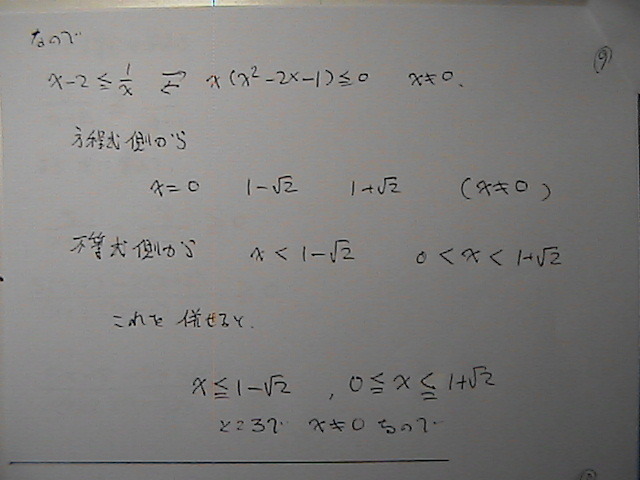 なので
⑨
x-2≦1/x ⇄ x(x²-2x-1)≦0 x≠0.
方程式側から
x=0 1-√2 1+√2 (x≠0)
不等式側から x<1-√2 0<x<1+√2
これを併せると.
x≦1-√2 , 0≦x≦1+√2
ところで x≠0 なので